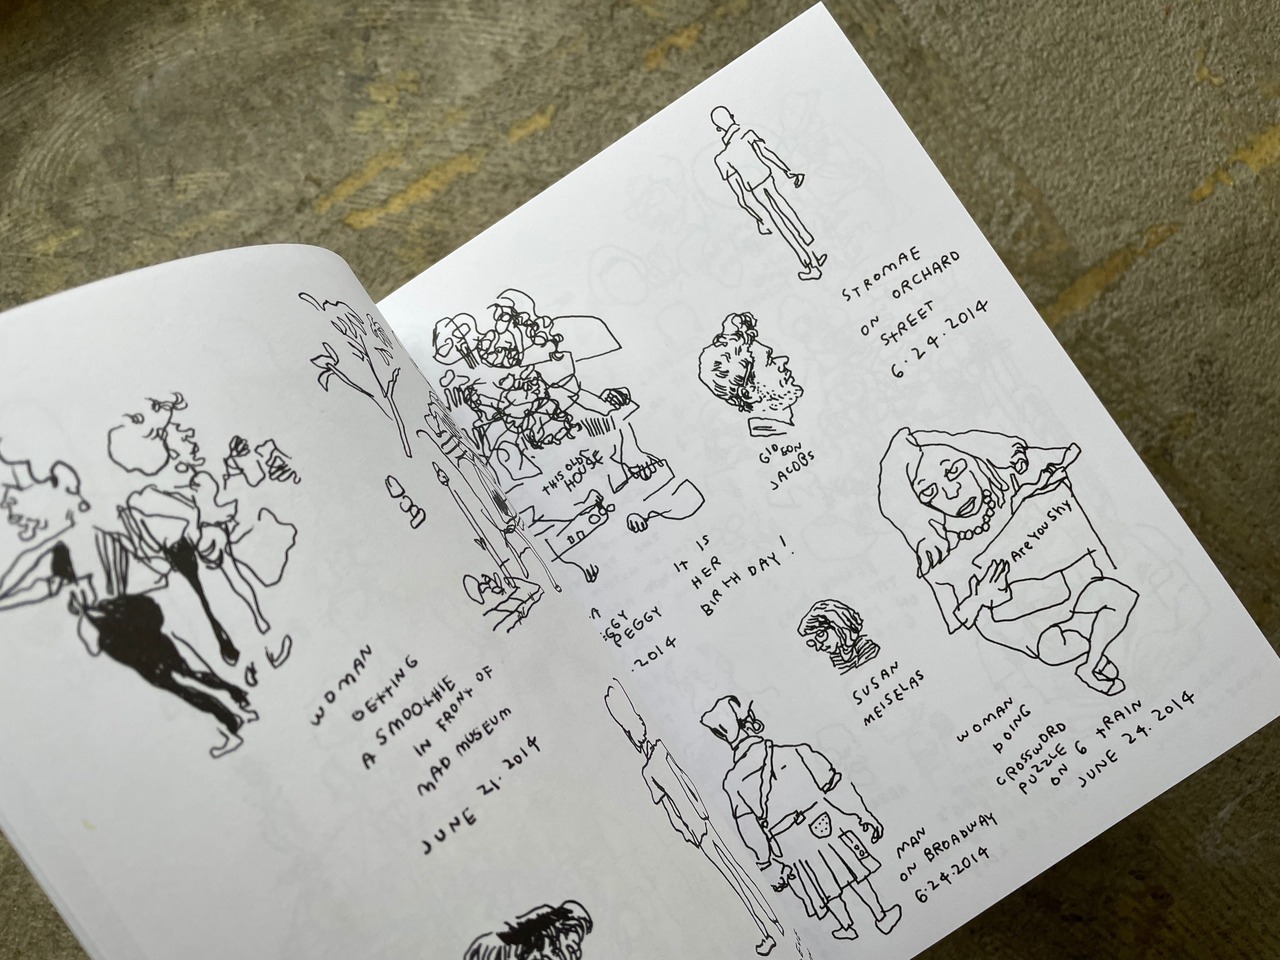 WOMAN
GETTING
A SMOOTHIE
IN FRONT OF
MAD MUSEUM
JUNE 21. 2014
THIS OLD
HOUSE
IT IS
HER
BIRTHDAY!
PEGGY
.2014
GIDEON
JACOBS
STROMAE
ON ORCHARD
STREET
6.24.2014
Are you shy
SUSAN
MEISELAS
WOMAN
DOING
CROSSWORD
PUZZLE
ON 6 TRAIN
JUNE 24. 2014
MAN
ON BROADWAY
6.24.2014